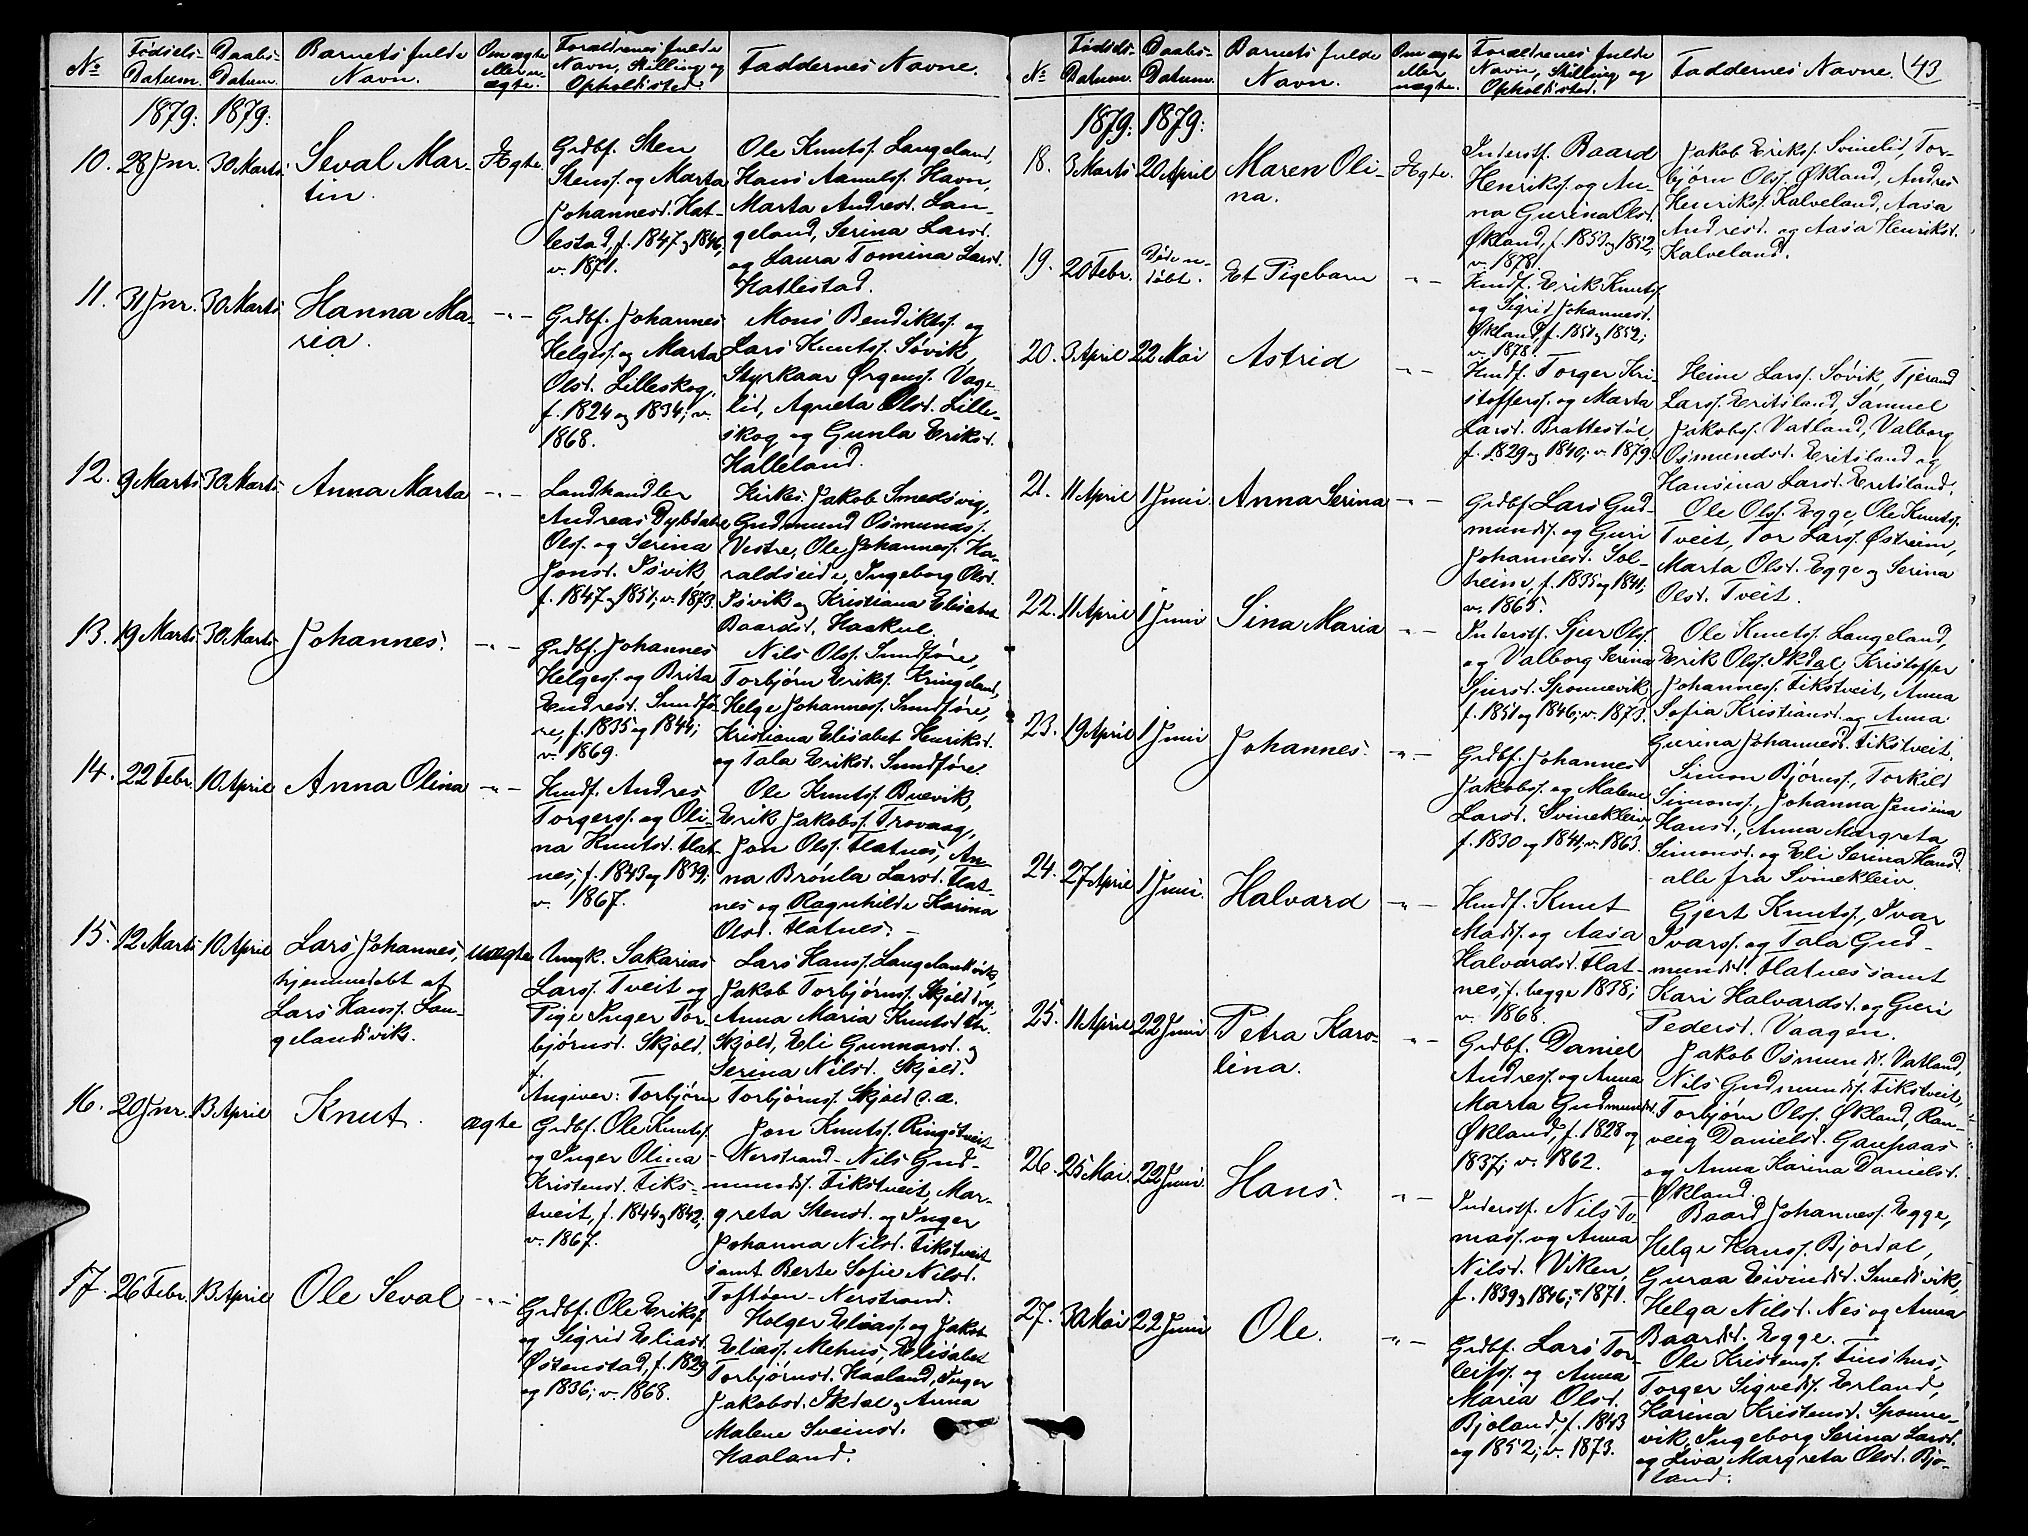 No
Fødsels-
Datum.
Daabs-
Datum.
Barnets fulde
Navn.
Om ægte
eller u-
ægte.
Forældrenes fulde
Navn, Stilling og
Opholdssted.
Faddernes Navne.
1879:
1879:
10.
28 Jnr.
30 Marts
Seval Mar-
tin.
Ægte.
Grdbf. Sten
Stenss. og Marta
Johannesd. Hat-
lestad, f. 1847 og 1846,
v. 1871.
Ole Knutss. Langeland,
Hans Aamelss. Havn,
Marta Andresd. Lan-
geland, Serina Larsd.
og Laura Tomina Larsd.
Hatlestad.
11.
31 Jnr.
30 Marts
Hanna Ma-
ria.
-"-
Grdbf. Johannes
Helgess. og Marta
Olsd. Lilleskog,
f. 1824 og 1834; v.
1868.
Mons Bendiktss. og
Lars Knutss. Søvik,
Styrkaar Ørgenss. Vage-
lid, Agneta Olsd. Lille-
skog og Gunla Eriksd.
Halleland.
12.
9 Marts
30 Marts
Anna Marta
-"-
Landhandler
Andreas Dybdahl
Olss. og Serina
Jonsd. Isvik,
f. 1847 og 1851; v. 1873.
Kirkes. Jakob Smedsvig,
Gudmund Osmundss.
Vestre, Ole Johanness. Ha-
raldseide, Ingeborg Olsd.
Isvik og Kristiana Elisabet
Baardsd. Haskul.
13.
19 Marts
30 Marts
Johannes.
-"-
Grdbf. Johannes
Helgess. og Brita
Endresd. Sundfø-
re, f. 1835 og 1844;
v. 1869.
Nils Olss. Sundføre,
Torbjørn Erikss. Kringeland,
Helge Johanness. Sundføre,
Kristiana Elisabet Henriksd.
og Tala Eriksd. Sundføre.
14.
22 Febr.
10 April
Anna Olina
-"-
Husdf. Andres
Torgerss. og Oli-
na Knutsd. Flat-
nes, f. 1843 og 1839;
v. 1867.
Ole Knutss. Brævik,
Erik Jakobss. Trovaag,
Jon Olss. Flatnes, An-
na Brønla Larsd. Flat-
nes og Ragnhilde Karina
Olsd. Flatnes. -
15.
12 Marts
10 April
Lars Johannes,
hjemmedøbt af
Lars Hanss. Lan-
gelandsvik.
Uægte
Ungk. Sakarias
Larss. Tveit og
Pige Inger Tor-
bjørnsd. Skjold.
f.
Lars Hanss. Langelandsvik,
Jakob Torbjørnss. Skjold
Anna Maria Knutsd.
Skjold, Eli Gunnarsd. og
Serina Nilsd. Skjold.
Angiver: Torbjørn Torbjørnss. Skjold s. æ.
16.
20 Jnr.
13 April
Knut.
ægte
Grdbf. Ole Knutss.
og Inger Olina
Kristensd. Fiks-
tveit, f. 1844 og 1842;
v. 1867.
Jon Knutss. Ringstveit
- Nerstrand - Nils Gud-
mundss. Fikstveit, Mar-
greta Stensd. og Inger
Johanna Nilsd. Fikstveit
samt Berte Sofie Nilsd.
Toftøen - Nerstrand.
17.
26 Febr.
13 April
Ole Seval
-"-
Grdbf. Ole Erikss.
og Sigrid Eliasd.
Østenstad, f. 1829
og 1836; v. 1868.
Holger Eliass. og Jakob
Eliass. Mehus, Elisabet
Torbjørnsd. Haaland, Inger
Jakobsd. Skdal og Anna
Malene Sveinsd.
Haaland.
No
Fødsels-
Datum.
Daabs-
Datum.
Barnets fulde
Navn.
Om ægte
eller
uægte.
Forældrenes fulde
Navn, Stilling og
Opholdssted.
Faddernes Navne.
43
1879:
1879:
18.
3 Marts
20 April
Maren Oli-
na.
Ægte.
Inderstf. Baard
Henrikss. og An-
na Gurina Olsd.
Økland, f. 1853 og 1852;
v. 1878.
Jakob Erikss. Svinelid, Tor-
bjørn Olss. Økland, Andres
Henrikss. Kalveland, Aasa
Andresd. og Aasa Henriksd.
Kalveland.
19.
20 Febr.
Døde u-
døbt.
Et Pigebarn
-"-
Husdf. Erik Knutss.
og Sigrid Johannesd.
Økland, f. 1851 og 1852;
v. 1878.
20.
3 April
22 Mai
Astrid
-"-
Husdf. Torger Kri-
stofferss. og Marta
Larsd. Brattestøl,
f. 1829 og 1840; v. 1879.
Heine Larss. Søvik, Tjerand
Larss. Eritsland, Samuel
Jakobss. Vatland, Valborg
Osmundsd. Eritsland og
Hansina Larsd. Eritsland.
21.
11 April
1 Juni.
Anna Serina
-"-
Grdbf. Lars Gud-
mundss. og Guri
Johannesd. Sol-
heim, f. 1835 og 1841;
v. 1865.
Ole Olss. Egge, Ole Knutss.
Tveit, Tor Larss. Østreim,
Marta Olsd. Egge og Serina
Olsd. Tveit.
22.
11 April
1 Juni
Sina Maria
-"-
Inderstf. Sjur Olss.
og Valborg Serina
Sjursd. Sponnevik,
f. 1851 og 1846; v. 1873.
Ole Knutss. Langeland,
Erik Olss. Skdal, Kristoffer
Johanness. Fikstveit, Anna
Sofia Kristiansd. og Anna
Gurina Johannesd. Fikstveit.
23.
19 April
1 Juni
Johannes.
-"-
Grdbf. Johannes
Jakobss. og Malene
Larsd. Svinekleiv,
f. 1830 og 1841; v. 1863.
Simon Bjørnss., Torkild
Simonss., Johanna Jensina
Hansd., Anna Margreta
Simonsd. og Eli Serina Hansd.
- alle fra Svinekleiv.
24.
27 April
1 Juni.
Halvard
-"-
Husdf. Knut
Madss. og Aasa
Halvardsd. Flat-
nes, f. begge 1838;
v. 1868.
Gjert Knutss., Ivar
Ivarss. og Tala Gud-
mundsd. Flatnes samt
Kari Halvardsd. og Guri
Pedersd. Vaagen.
25.
11 April
22 Juni
Petra Karo-
lina.
-"-
Grdbf. Daniel
Andress. og Anna
Marta Gudmundsd.
Økland, f. 1828 og
1837; v. 1862.
Jakob Osmundss. Vatland,
Nils Gudmundss. Fikstveit,
Torbjørn Olss. Økland, Ran-
veig Danielsd. Gaupaas
og Anna Karina Danielsd.
Økland.
26.
25 Mai.
22 Juni.
Hans.
-"-
Inderstf. Nils To-
mass. og Anna
Nilsd. Viken,
f. 1839 og 1846; v. 1871.
Baard Johanness. Egge,
Helge Hanss. Bjordal,
Guraa Eivindsd. Smedsvik,
Helga Nilsd. Nes og Anna
Baardsd. Egge.
27.
30 Mai
22 Juni
Ole.
-"-
Grdbf. Lars Tor-
leifss. og Anna
Maria Olsd.
Bjoland, f. 1843
og 1852; v. 1873.
Ole Kristenss. Tueshus,
Torger Sigvedss. Erland,
Karina Kristensd. Sponne-
vik, Ingeborg Serina Larsd.
og Liva Margreta Olsd. Bjo-
land.